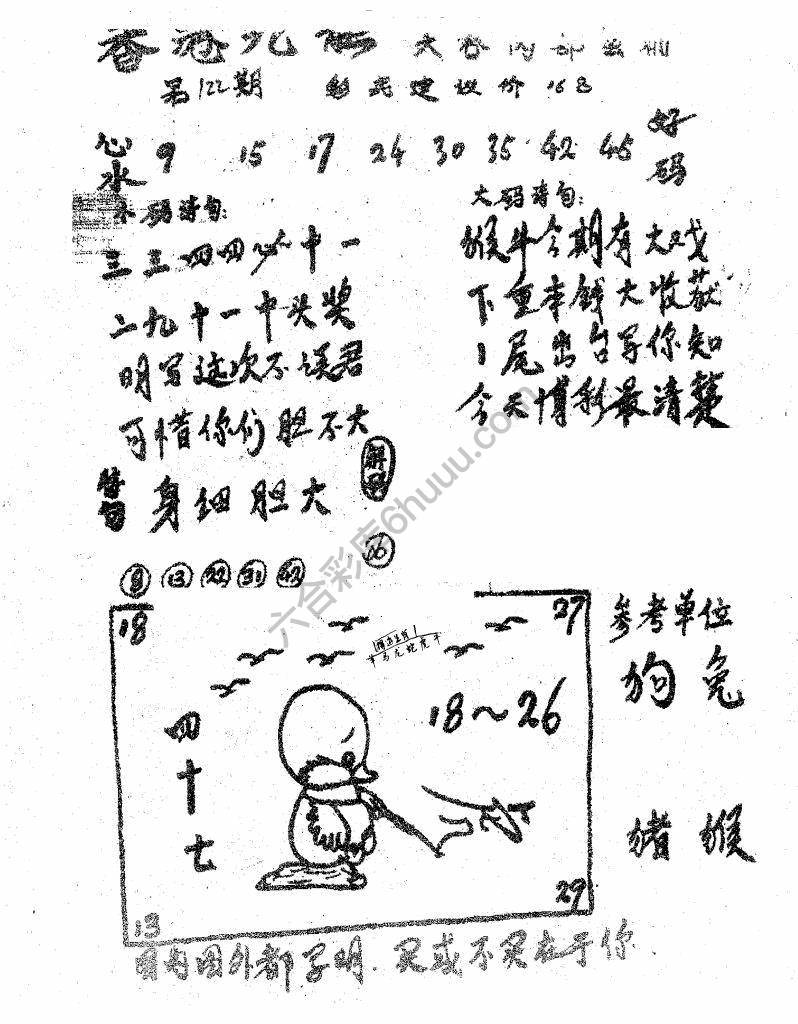 香港九
大 内部
第122期 彩民建议价 16
心水 9 15 17 24 30 35 42 45 好码
小码诗句:
三三四四必中一
二九十一中头奖
明写这次不误君
可惜你们胆不大
大码诗句:
猴牛今期有大戏
下重本钱大收获
1尾出台写你知
今天博彩最清楚
特句 身细胆大
解
26
8 13 22 31 42
18 27
羊马龙蛇虎牛
18~26
四十七
13 29
参考单位
狗兔
猪猴
图内图外都写明.灵或不灵在于你
六合彩库6huuu.com